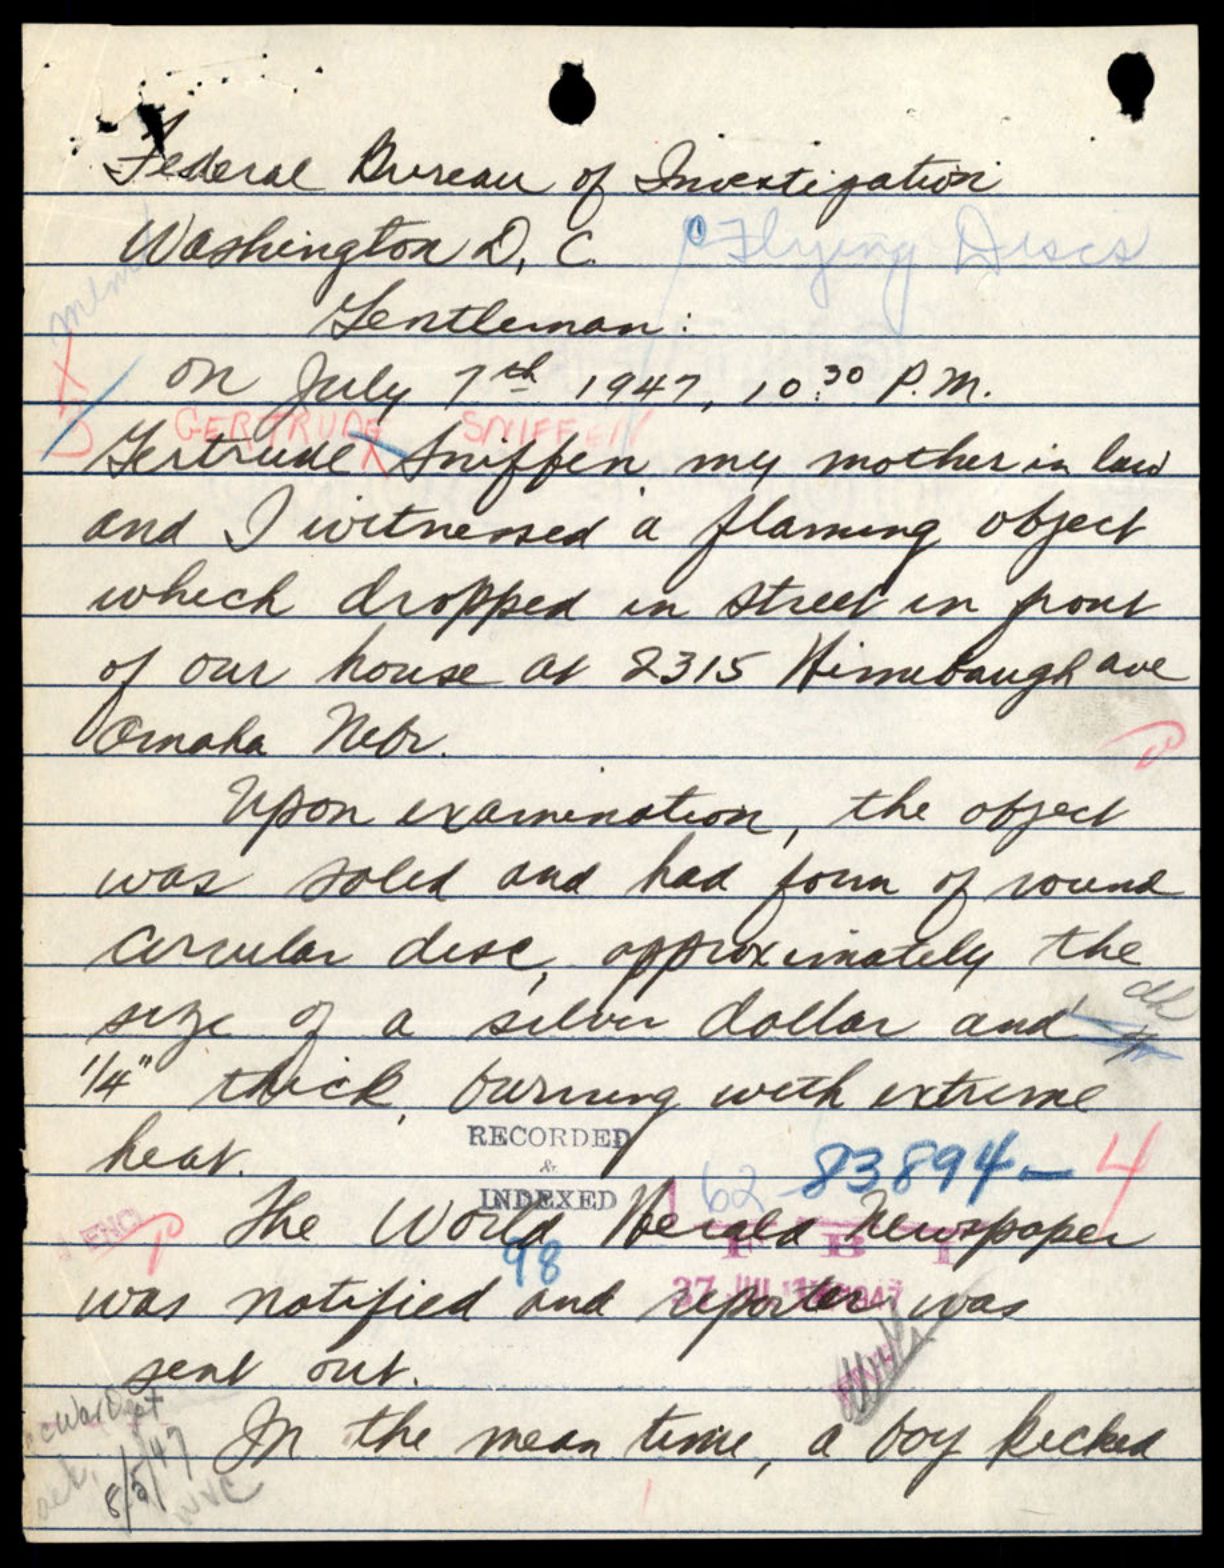 Federal Bureau of Investigation
Washington D. C.
Flying Discs
memo
Gentleman:
on July 7th 1947, 10:30 P.M.
GERTRUDE SNIFFEN
Gertrude Sniffen my mother in law
and I witnessed a flaming object
which dropped in street in front
of our house at 2315 Himebaugh ave
Omaha Nebr.
Upon examination, the object
was solid and had form of round
circular disc, approximately the
size of a silver dollar and
1/4" thick, burning with extreme
heat.
RECORDED
&
INDEXED
98
62-83894-4
F B I
ENCL
The World Herald Newspaper
was notified and reporter was
sent out.
In the mean time, a boy kicked
cc War Dept
ack.
8/5/47